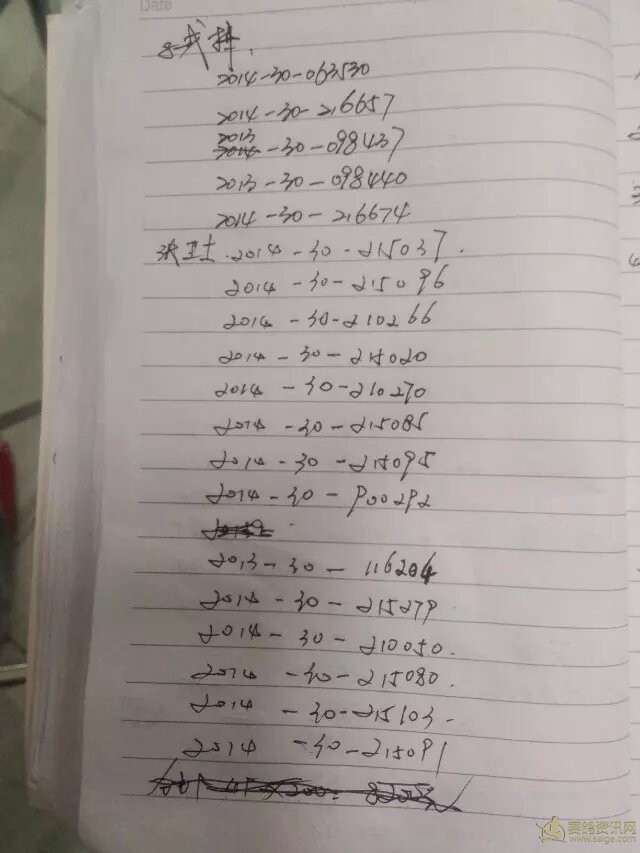 Date
2014-30-063530
2014-30-216657
2013
2014-30-098437
2013-30-098440
2014-30-216674
张卫士.2014-30-215037.
2014-30-215096
2014-30-210266
2014-30-215020
2014-30-210270
2014-30-215085
2014-30-215095
2014-30-P00292
2013-30-116204
2014-30-215279
2014-30-210050.
2014-30-215080.
2014-30-215103-
2014-30-215091
赛鸽资讯网
www.saige.com